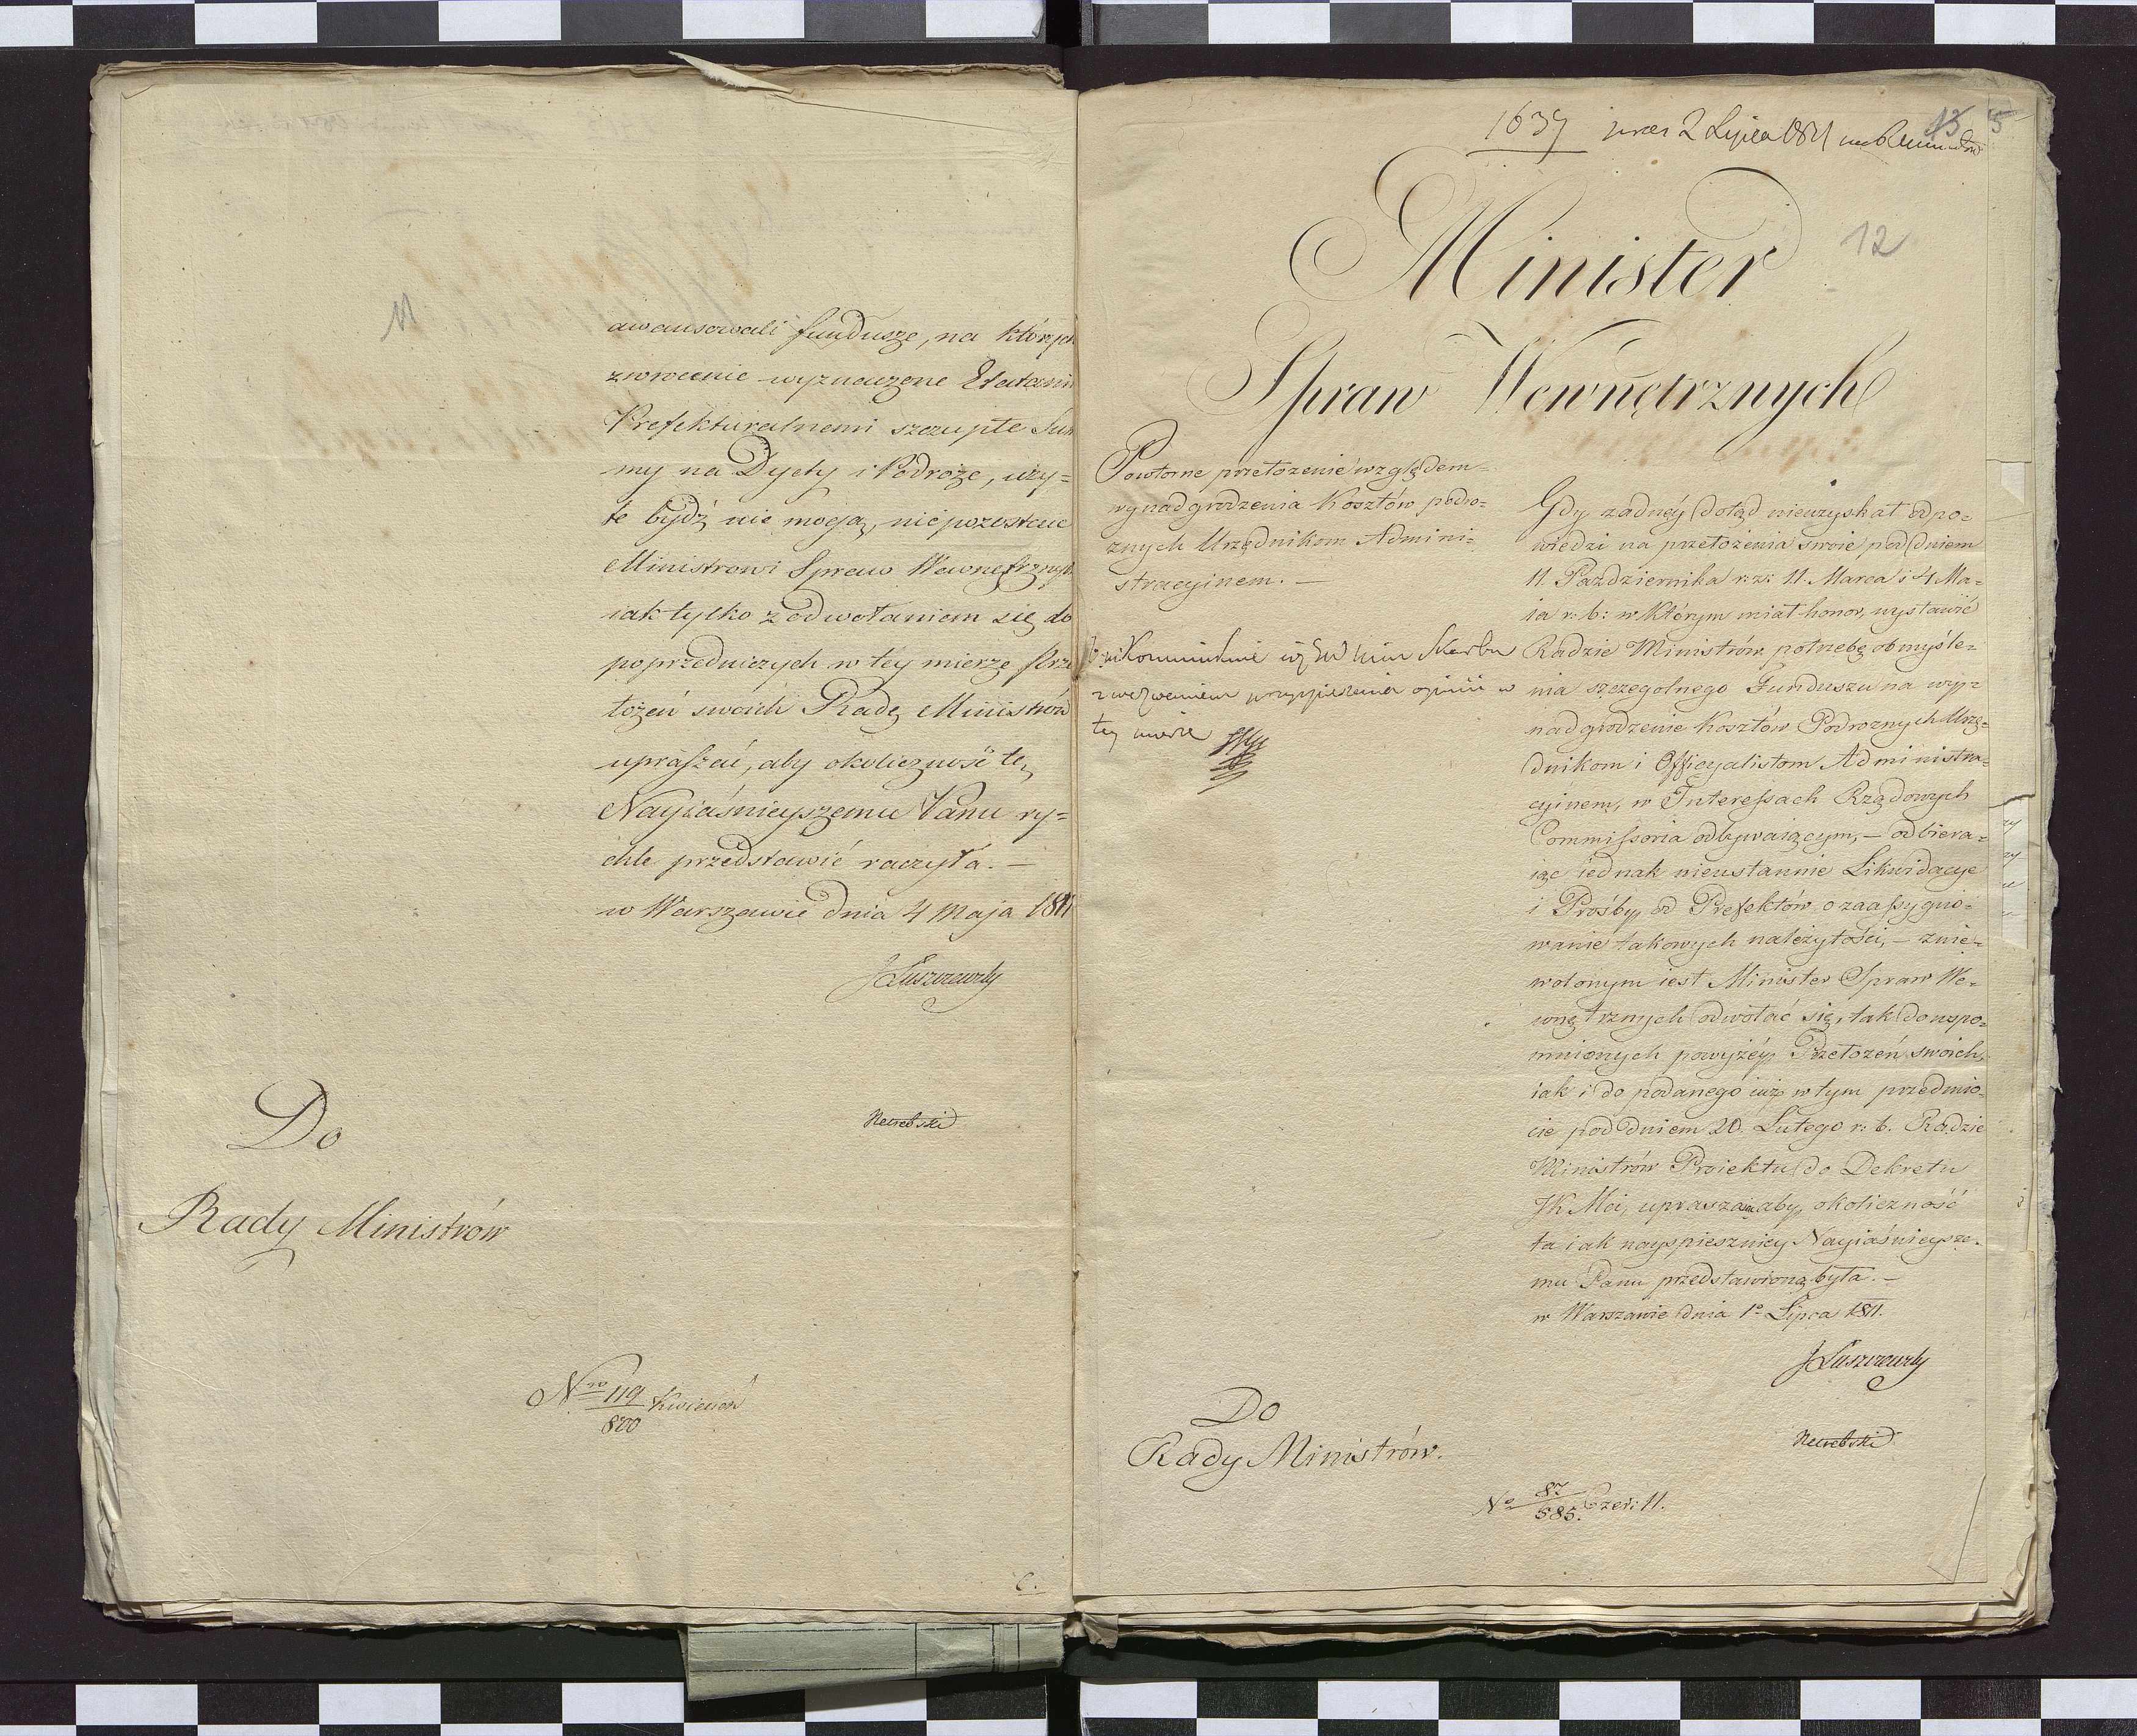 11
awansowali fundusze, na których
zwrócenie wyznaczone Etatami
Prefekturalnemi szczupłe Sum
my na Dyety i Podróże, uży=
te bydź nie mogą, nie pozostaie
Ministrowi Spraw Wewnętrznych
iak tylko z odwołaniem się do
poprzedniczych w tey mierze Prze
łożeń swoich Radę Ministrów
upraszać, aby okoliczność tę
Nayiaśnieyszemu Panu ry=
chle przedstawić raczyła. —
w Warszawie dnia 4 Maja 1811
JŁuszczewsky
Do
Rady Ministrów
Nro 119/800 Kwiecień
C.
1639 prez 2 Lipca 1811
13 5
12
Minister
Spraw Wewnętrznych
Powtorne przełożenie względem
wynadgrodzenia Kosztów podro=
znych Urzędnikom Admini=
stracyinem. —
Skarbu
opinii w
tey mierze
Gdy żadnéy dotąd nieuzyskał odpo=
wiedzi na przełożenia swoie pod dniem
11 Pazdziernika r: z: 11. Marca i 4 Ma=
ia r: b: w którym miał honor, wystawić
Radzie Ministrów potrzebę obmyśle=
nia szczegolnego Funduszu na wy=
nadgrodzenie Kosztów Podroznych Urzę=
dnikom i Officyalistom Administra=
cyinem, w Interessach Rządowych
Commissoria odbywaiącym, — odbiera=
iąc iednak nieustannie Likwidacye
i Prośby od Prefektów o zaassygno=
wanie takowych należytości, — znie=
wolonym iest Minister Spraw We=
wnętrznych odwołać się, tak do wspo=
mnionych powyżéy Przełożeń swoich,
iak i do podanego iuż w tym przedmio=
cie pod dniem 20. Lutego r: b. Radzie
Ministrów Proiektu do Dekretu
JK Mci, upraszaiąc aby okoliczność
ta iak nayspieszniey Nayiaśnieysze=
mu Panu przedstawioną była. —
w Warszawie dnia 1º Lipca 1811.
JŁuszczewsky
Do
Rady Ministrów.
No 87/585. Czer: 11.